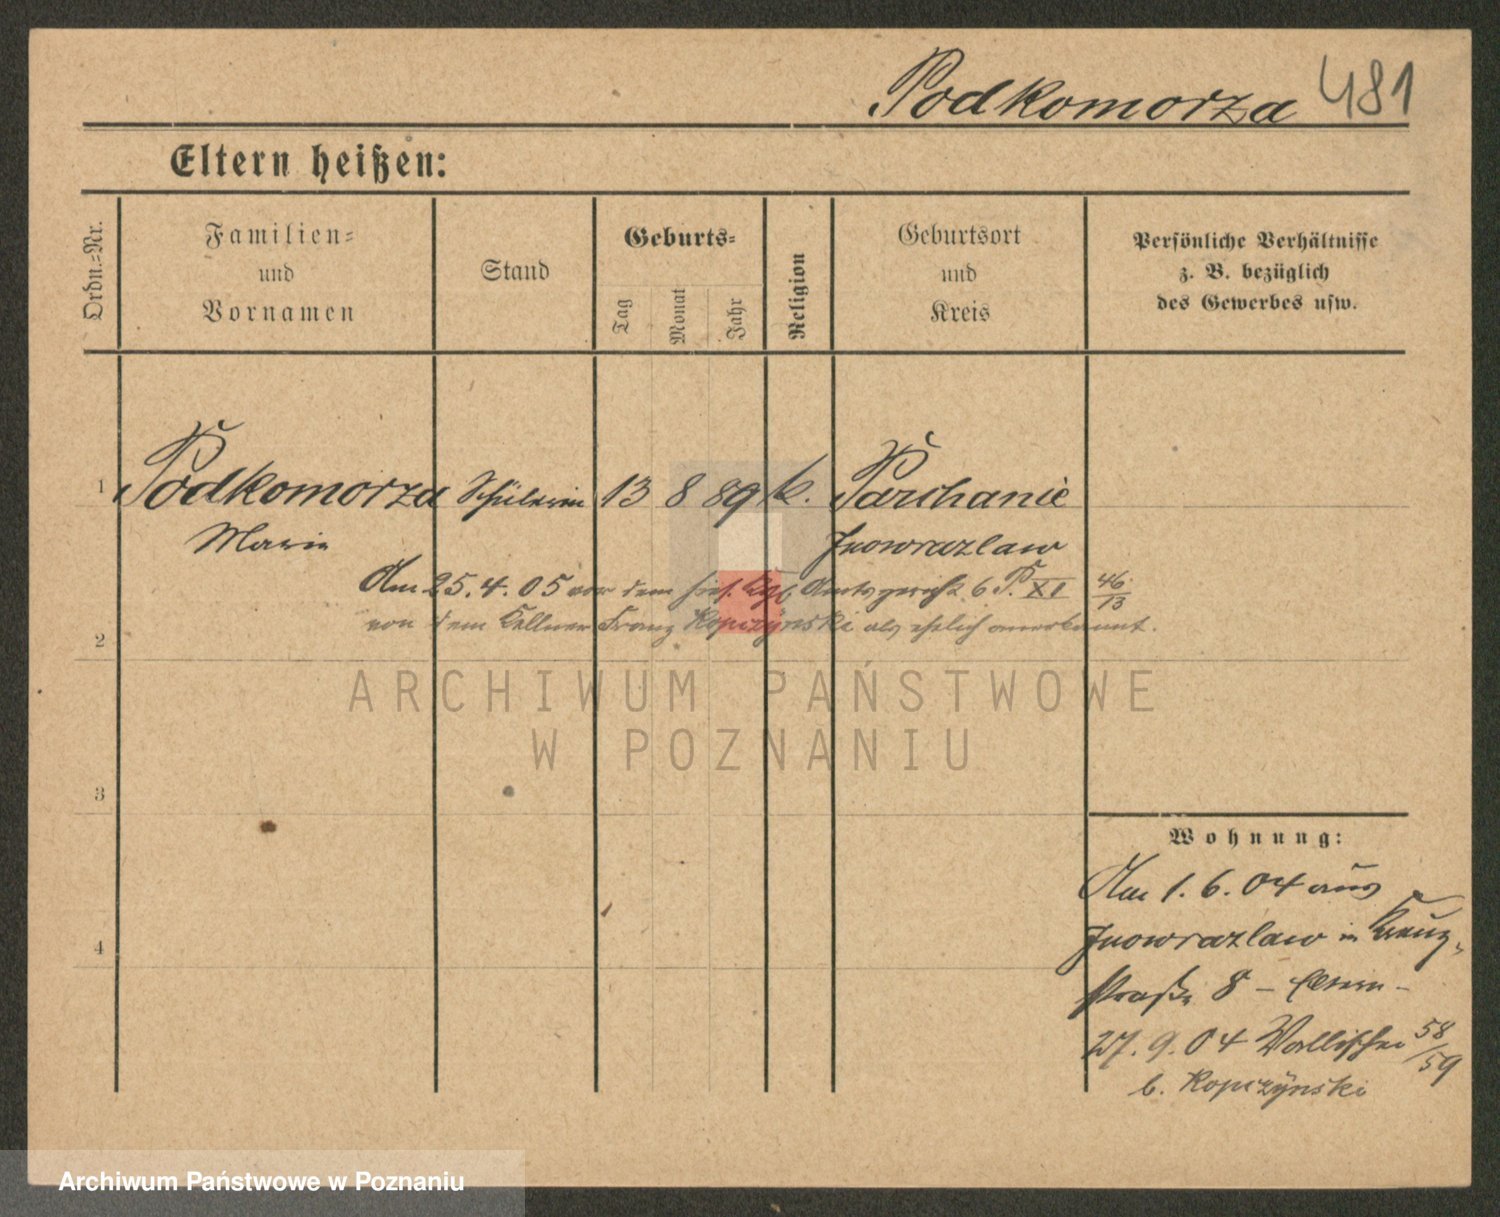 Podkomorza 481
Eltern heißen:
Ordn.-Nr.
Familien-
und
Vornamen
Stand
Geburts-
Tag
Monat
Jahr
Religion
Geburtsort
und
Kreis
Persönliche Verhältnisse
z. B. bezüglich
des Gewerbes usw.
1 Podkomorza Schülerin 13 8 89 k. Parchanie
Marie Inowrazlaw
Am 25.4.05 vor dem hies. Kgl. Amtsgericht 6 P. XI 46/13
2 von dem Kellner Franz Kopczÿnski als ehelich anerkannt.
ARCHIWUM PAŃSTWOWE
W POZNANIU
3
Wohnung:
Am 1.6.04 aus
4 Inowrazlaw in Kreuz-
straße 8 – Eltern –
27.9.04 Wallischei 58/59
b. Kopczÿnski
Archiwum Państwowe w Poznaniu